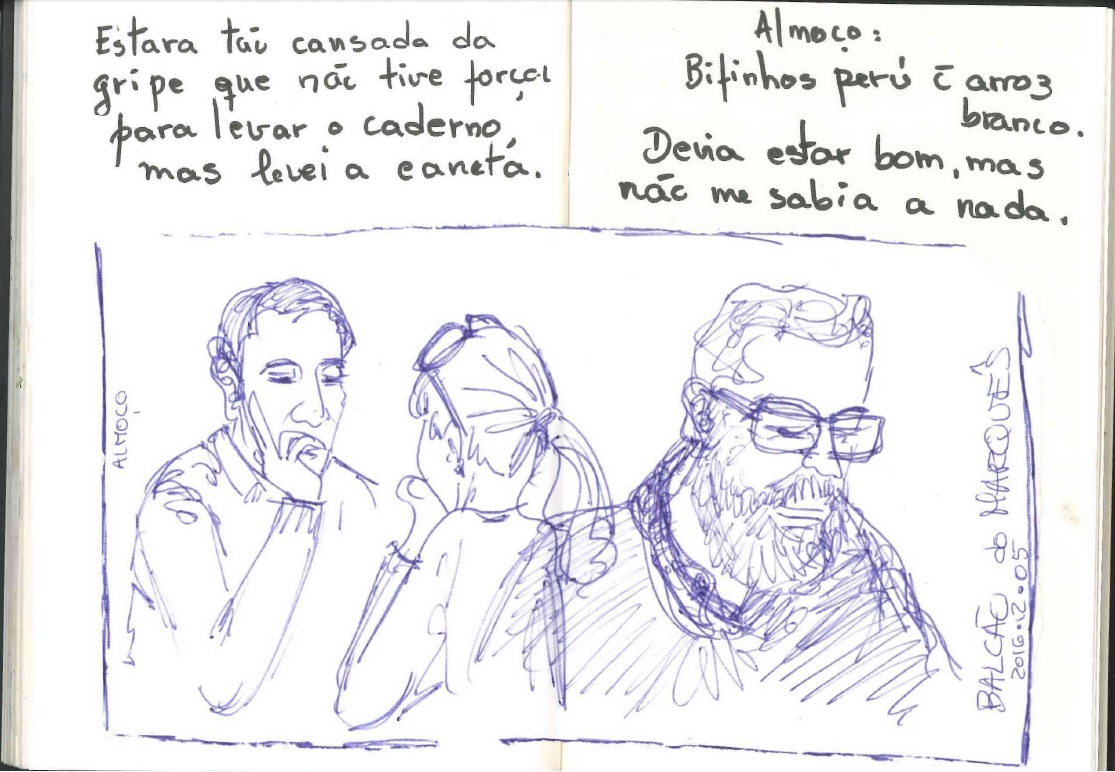 Estara tão cansada da
gripe que não tive força
para levar o caderno,
mas levei a caneta.
Almoço:
Bifinhos perú c̄ arroz
branco.
Devia estar bom, mas
não me sabia a nada.
ALMOÇO
BALCÃO do MARQUÊS
2016.12.05